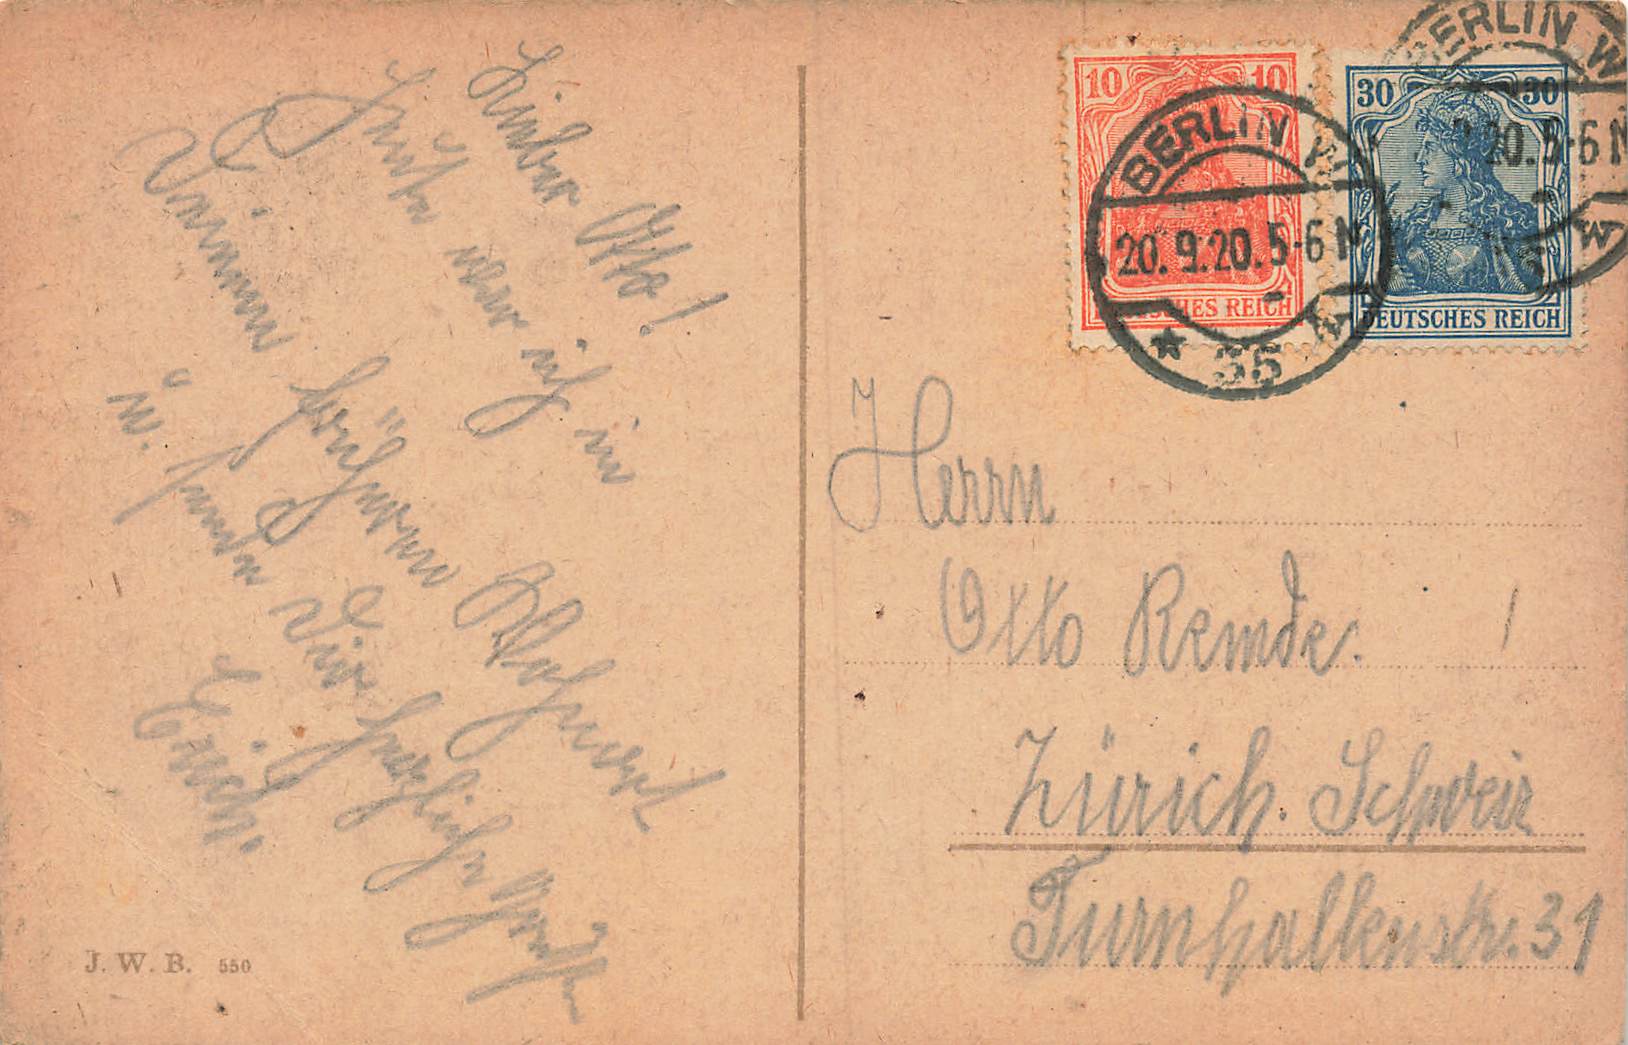 Lieber Otto!
Heute war ich in
Deinem früheren Wohnort
u. sende Dir herzliche Grüße
Erich.
J. W. B. 550
10 10
DEUTSCHES REICH
30 30
DEUTSCHES REICH
BERLIN W
20.9.20.5-6N
* 35
BERLIN W
20.5-6N
Herrn
Otto Remde.
Zürich. Schweiz
Turnhallenstr. 31